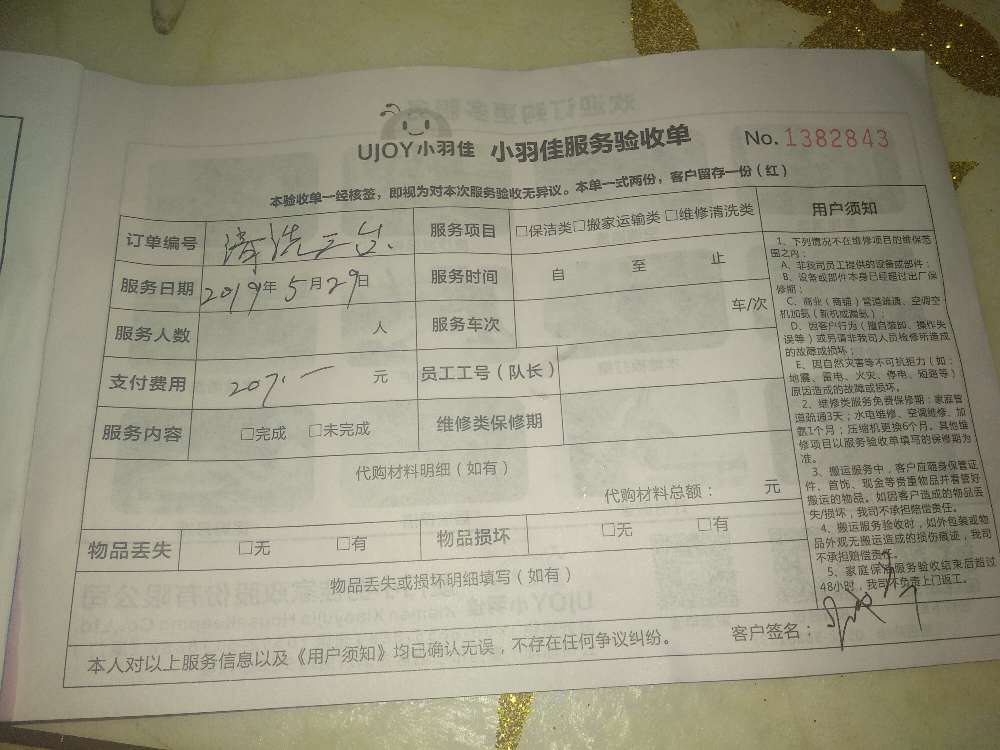 UJOY小羽佳 小羽佳服务验收单 No.1382843
本验收单一经核签，即视为对本次服务验收无异议。本单一式两份，客户留存一份（红）
订单编号 清洗三台 服务项目 □保洁类□搬家运输类□维修清洗类
服务日期 2019年5月29日 服务时间 自 至 止
服务人数 人 服务车次 车/次
支付费用 207.一 元 员工工号（队长）
服务内容 □完成 □未完成 维修类保修期
代购材料明细（如有）
代购材料总额： 元
物品丢失 □无 □有 物品损坏 □无 □有
物品丢失或损坏明细填写（如有）
用户须知
1、下列情况不在维修项目的维保范
围之内：
A、非我司员工提供的设备或部件；
B、设备或部件本身已经超过出厂保
修期；
C、商业（商铺）管道疏通、空调空
机加氨（新机或漏氨）；
D、因客户行为（擅自装卸、操作失
误等）或另请非我司人员检修所造成
的故障或损坏；
E、因自然灾害等不可抗拒力（如：
地震、雷电、火灾、停电、短路等）
原因造成的故障或损坏。
2、维修类服务免费保修期：家庭管
道疏通3天；水电维修、空调维修、加
氨1个月；压缩机更换6个月。其他维
修项目以服务验收单填写的保修期为
准。
3、搬运服务中，客户应随身保管证
件、首饰、现金等贵重物品并看管好
搬运的物品。如因客户造成的物品丢
失/损坏，我司不承担赔偿责任。
4、搬运服务验收时，如外包装或物
品外观无搬运造成的损伤痕迹，我司
不承担赔偿责任。
5、家庭保洁服务验收结束后超过
48小时，我司不负责上门返工。
本人对以上服务信息以及《用户须知》均已确认无误，不存在任何争议纠纷。 客户签名：